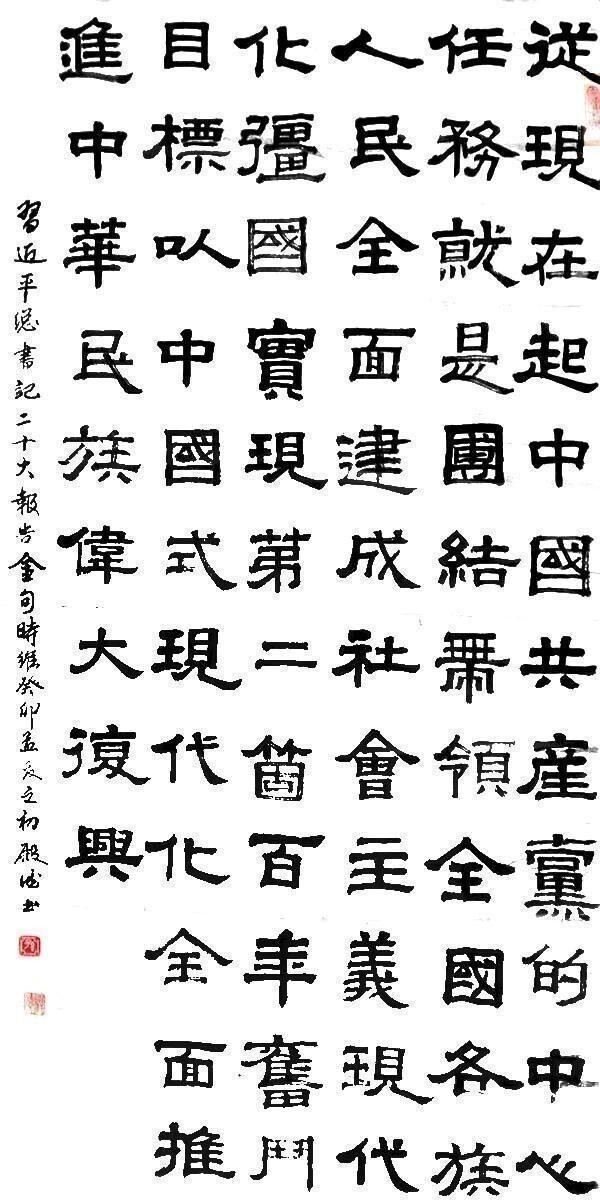 從現在起中國共產黨的中心
任務就是團結帶領全國各族
人民全面建成社會主義現代
化彊國實現第二箇百年奮鬥
目標以中國式現代化全面推
進中華民族偉大復興
習近平總書記二十大報告金句時維癸卯孟夏之初殿书